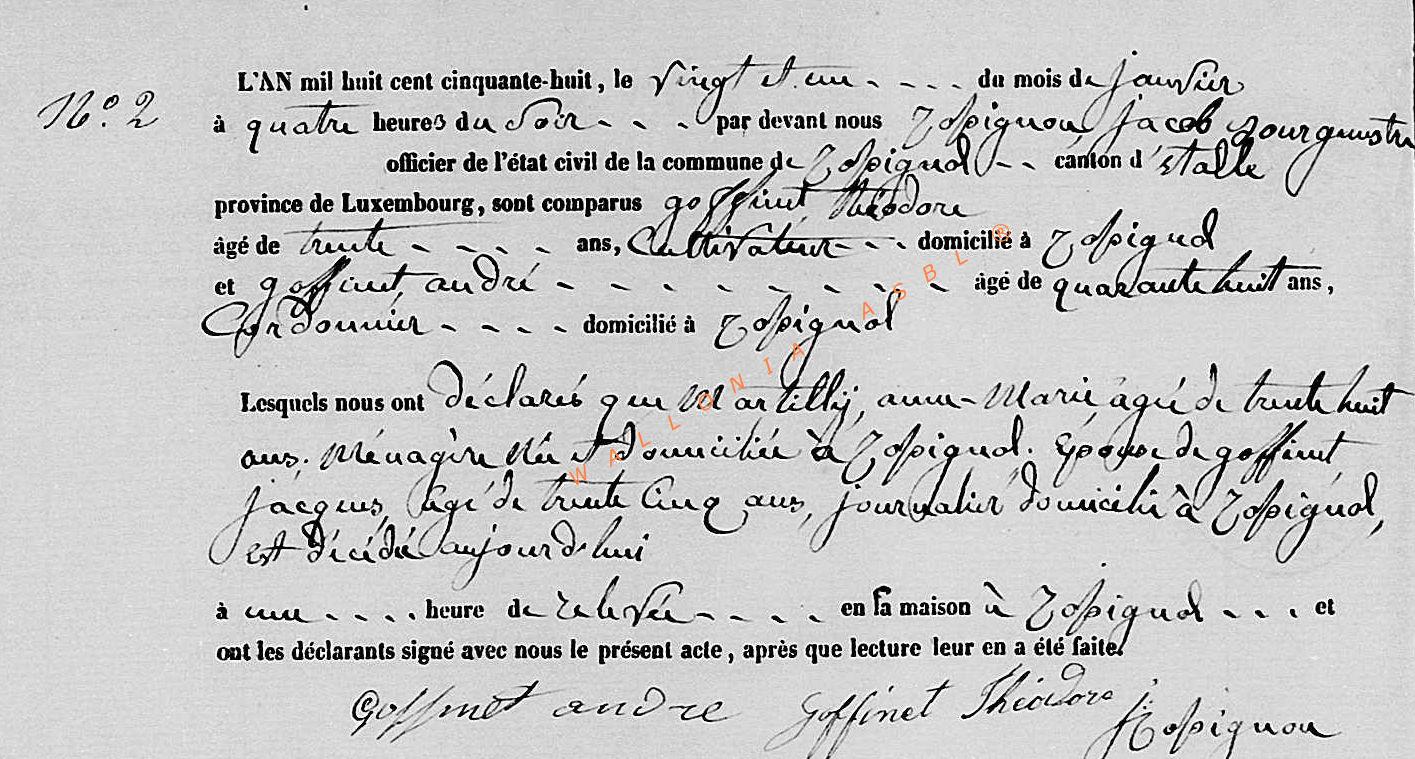 N.o 2
L'AN mil huit cent cinquante-huit, le vingt et un - - - - du mois de janvier
à quatre heures du soir - - - par devant nous Rossignon jacob bourgmestre
officier de l'état civil de la commune de Rossignol - - canton d'étalle
province de Luxembourg, sont comparus goffinet théodore
âgé de trente - - - - ans, Cultivateur - - - domicilié à Rossignol
et goffinet andré - - - - - - - - - âgé de quarante huit ans,
Cordonnier - - - - domicilié à Rossignol
Lesquels nous ont déclarés que Martilly, anne-Marie, agée de trente huit
ans, Ménagère née et domiciliée à Rossignol. épouse de goffinet
jacques, agé de trente cinq ans, journalier domicilié à Rossignol,
est décédée aujourd'hui
à une - - - - heure de relevée - - - - en sa maison à Rossignol - - - et
ont les déclarants signé avec nous le présent acte, après que lecture leur en a été faite.
Goffinet andre Goffinet Théodore j: Rossignon
WALLONIA ASBL ©